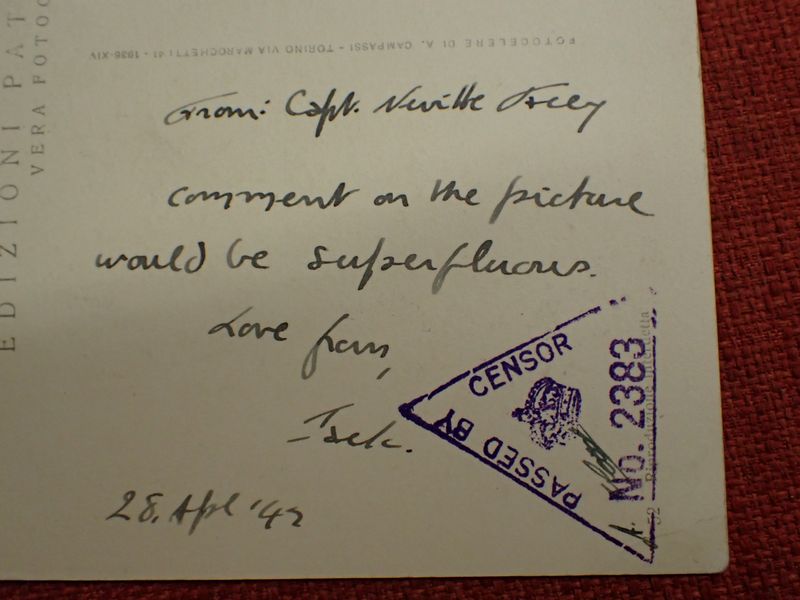 EDIZIONI PAT
VERA FOTOG
FOTOCELERE DI A. CAMPASSI - TORINO VIA MAROCHETTI 41 - 1936-XIV
From: Capt. Neville
comment on the picture
would be superfluous.
Love from,
28. Apl '42
PASSED BY
CENSOR
No. 2383
Riproduzione